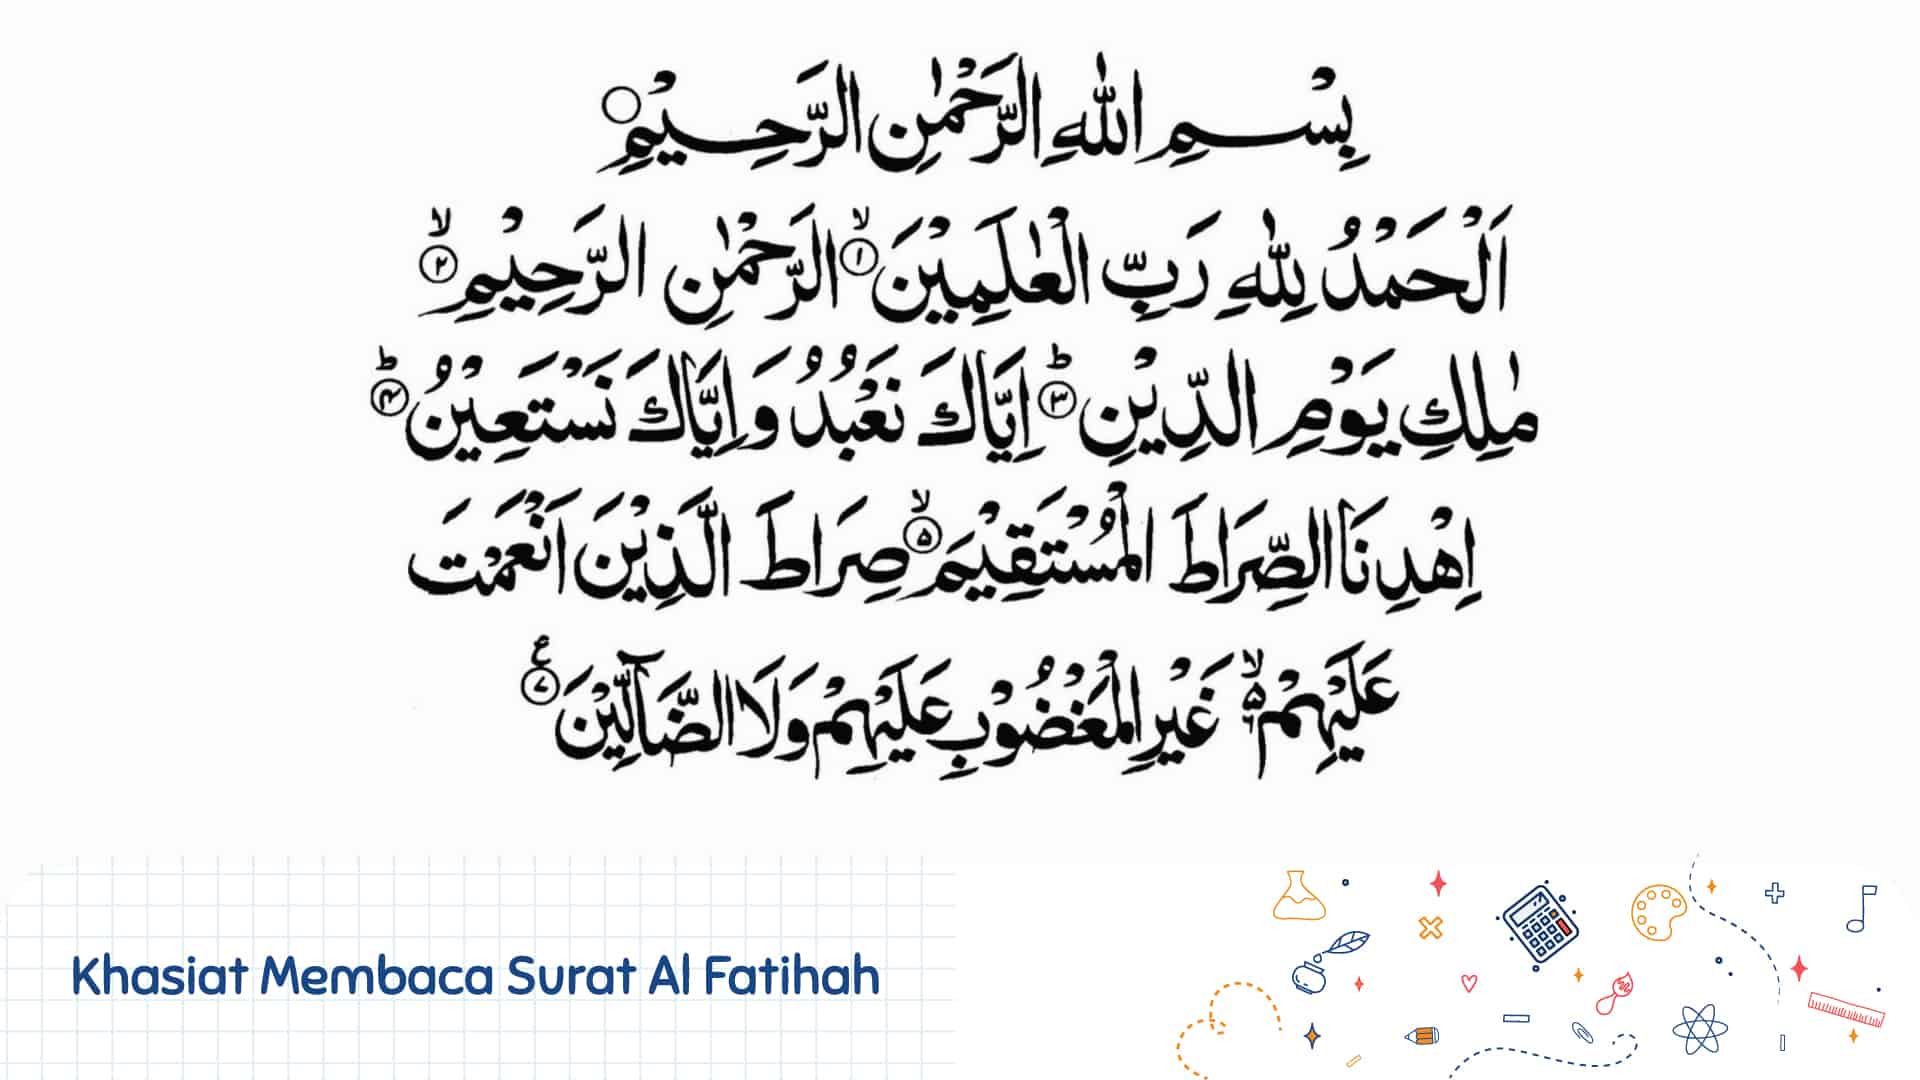 بِسْمِ اللّٰهِ الرَّحْمٰنِ الرَّحِيْمِ ۝
اَلْحَمْدُ لِلّٰهِ رَبِّ الْعٰلَمِيْنَ ۙ﴿۱﴾ الرَّحْمٰنِ الرَّحِيْمِ ۙ﴿۲﴾
مٰلِكِ يَوْمِ الدِّيْنِ ؕ﴿۳﴾ اِيَّاكَ نَعْبُدُ وَاِيَّاكَ نَسْتَعِيْنُ ؕ﴿۴﴾
اِهْدِنَا الصِّرَاطَ الْمُسْتَقِيْمَ ۙ﴿۵﴾ صِرَاطَ الَّذِيْنَ اَنْعَمْتَ
عَلَيْهِمْ ۙ۬ غَيْرِ الْمَغْضُوْبِ عَلَيْهِمْ وَلَا الضَّآلِّيْنَ ﴿۷﴾ ع
Khasiat Membaca Surat Al Fatihah